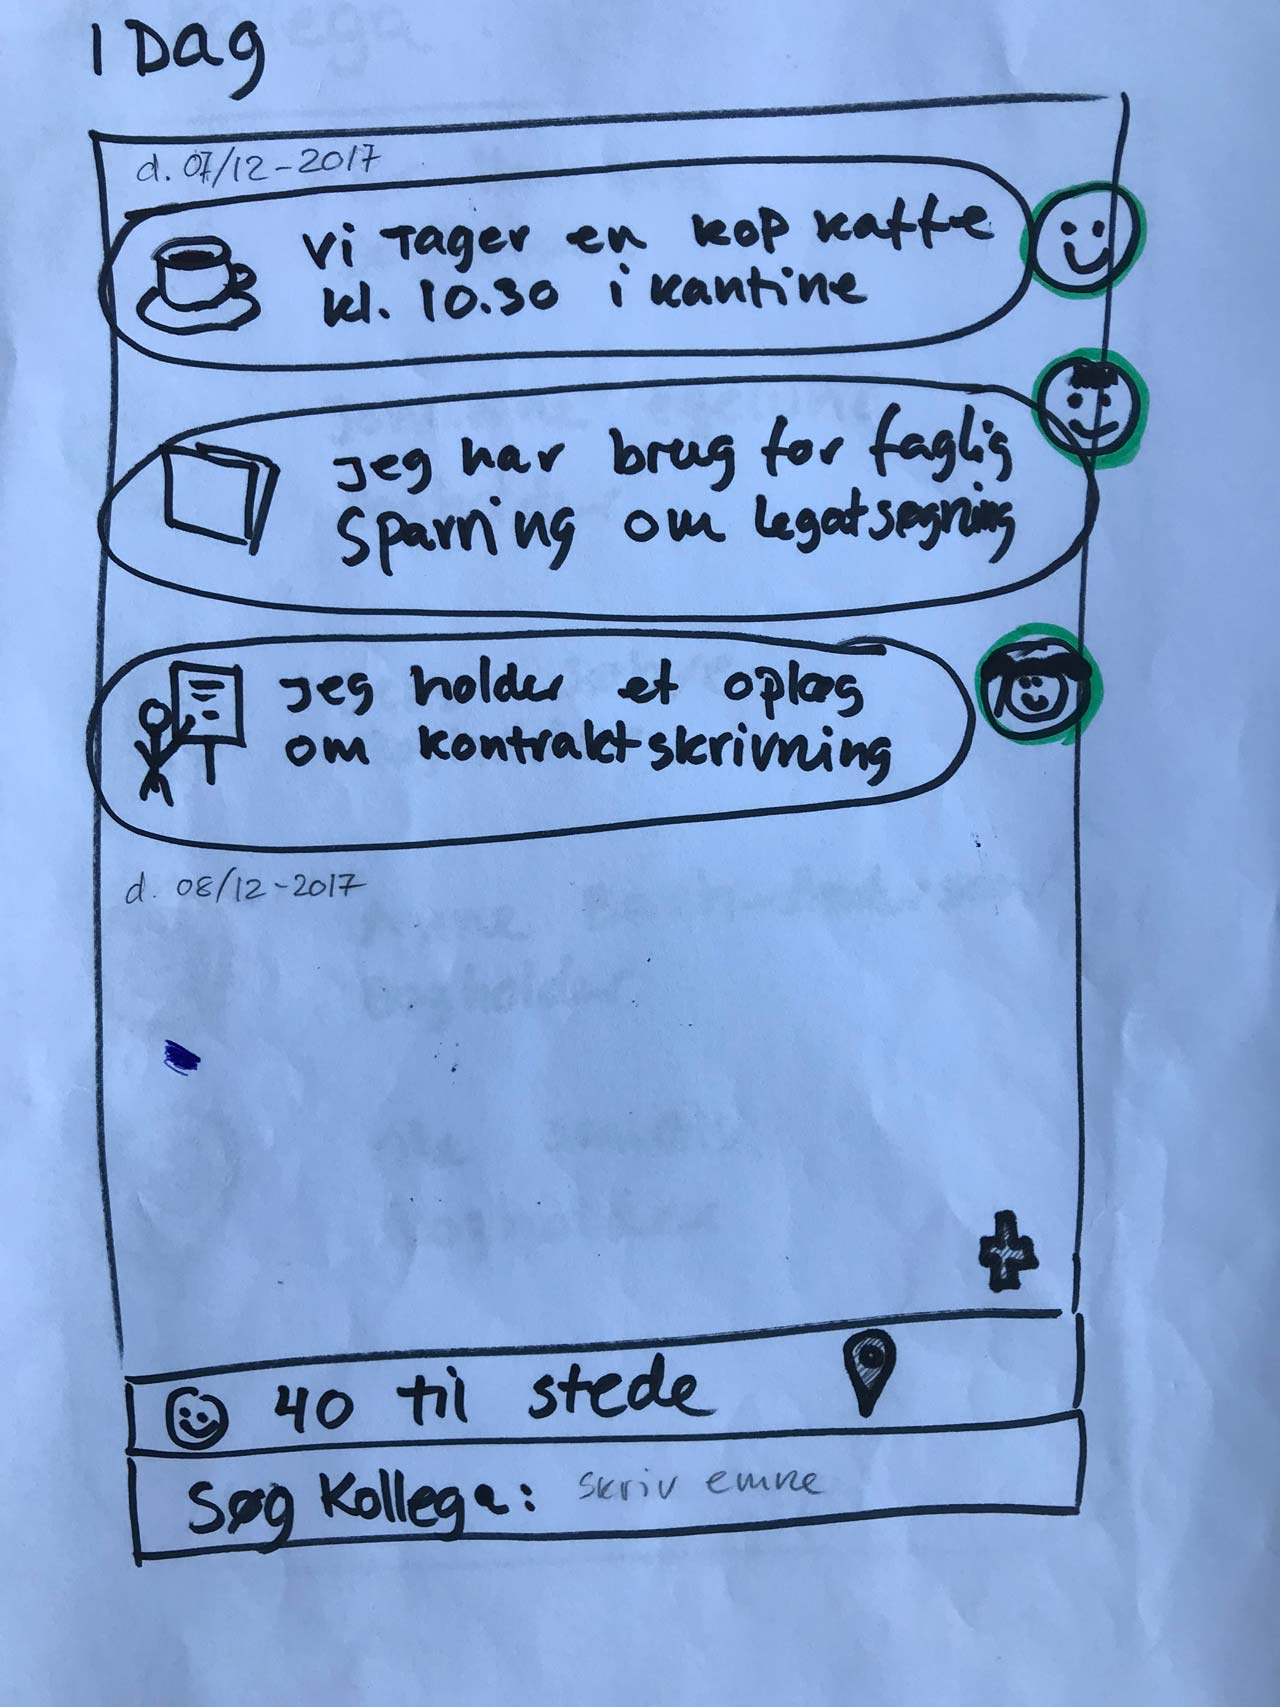 I Dag
d. 07/12-2017
Vi Tager en kop kaffe
kl. 10.30 i kantine
jeg har brug for faglig
Sparring om Legatsøgning
jeg holder et oplæg
om kontraktskrivning
d. 08/12-2017
40 til stede
Søg Kollega: skriv emne